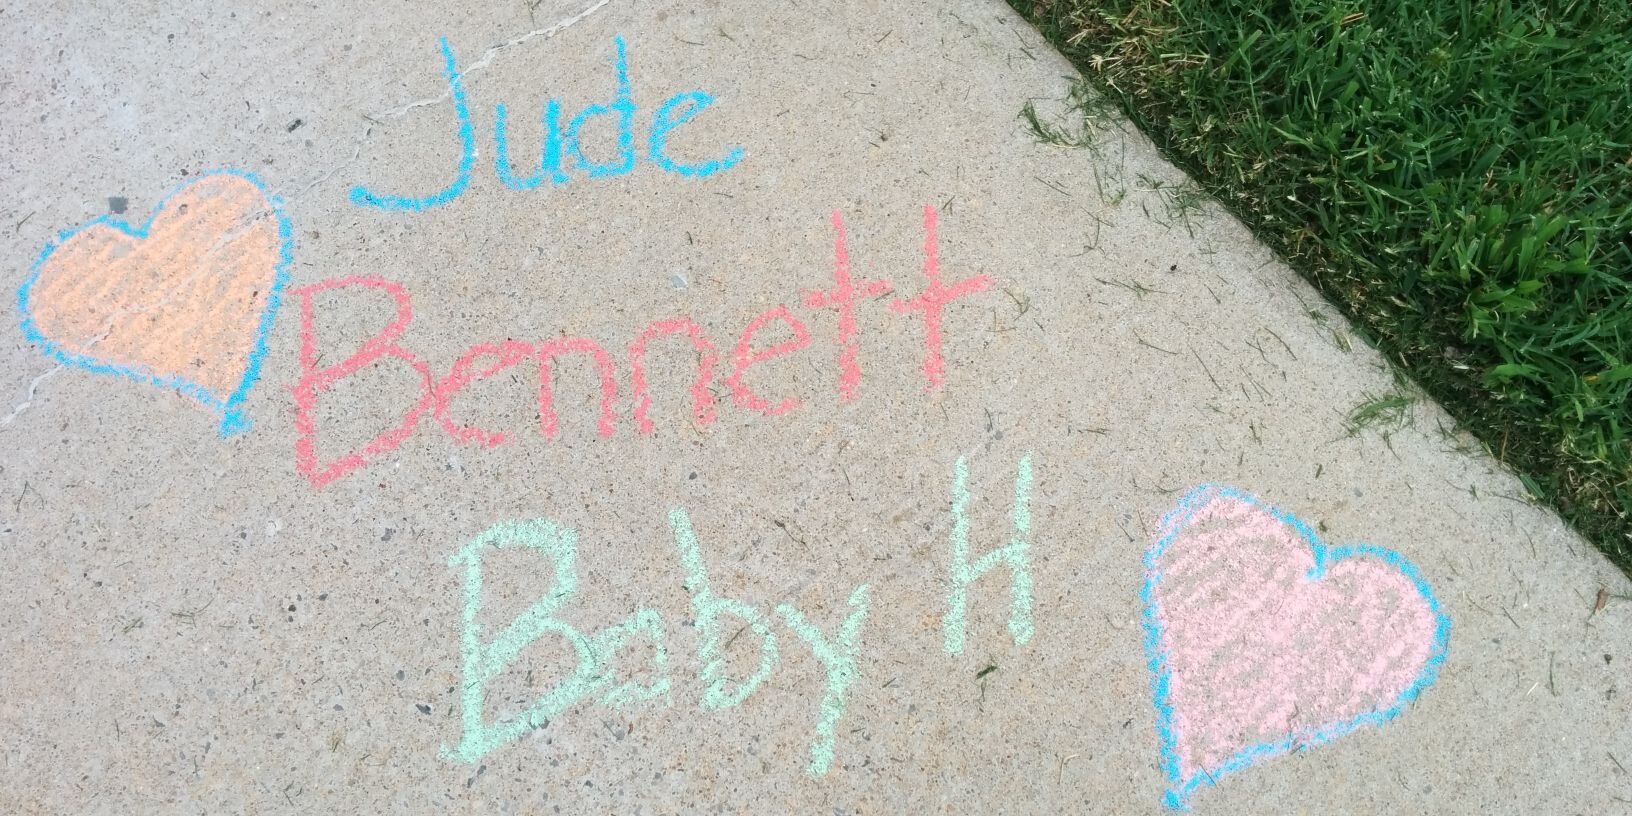 Jude
Bennett
Baby H